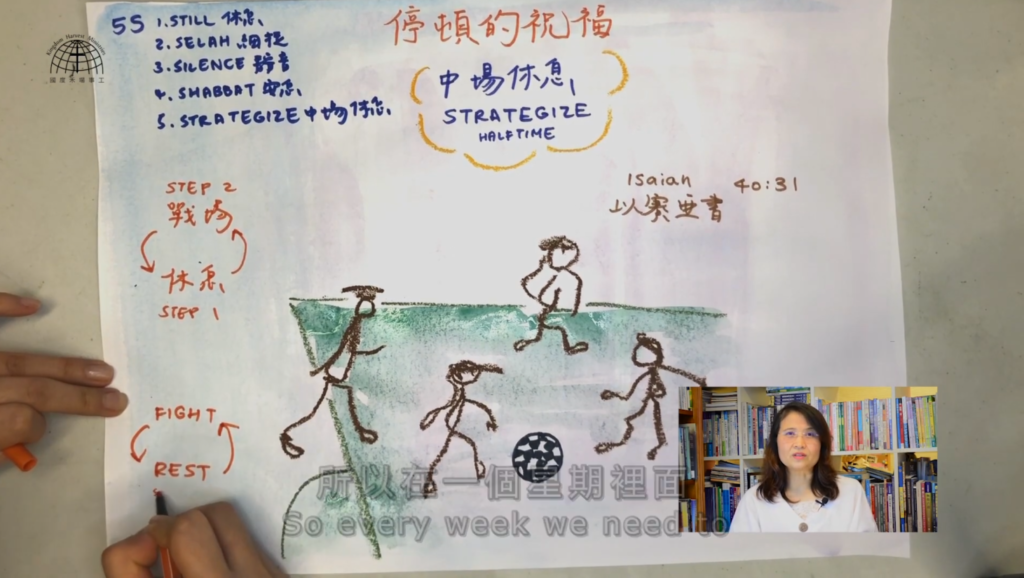 5S 1.STILL 休息
2. SELAH 細想
3. SILENCE 靜音
4. SHABBAT 安息
5. STRATEGIZE 中場休息
停頓的祝福
中場休息
STRATEGIZE
HALFTIME
Isaian 40:31
以賽亞書
STEP 2
戰場
休息
STEP 1
FIGHT
REST
所以在一個星期裡面
So every week we need to